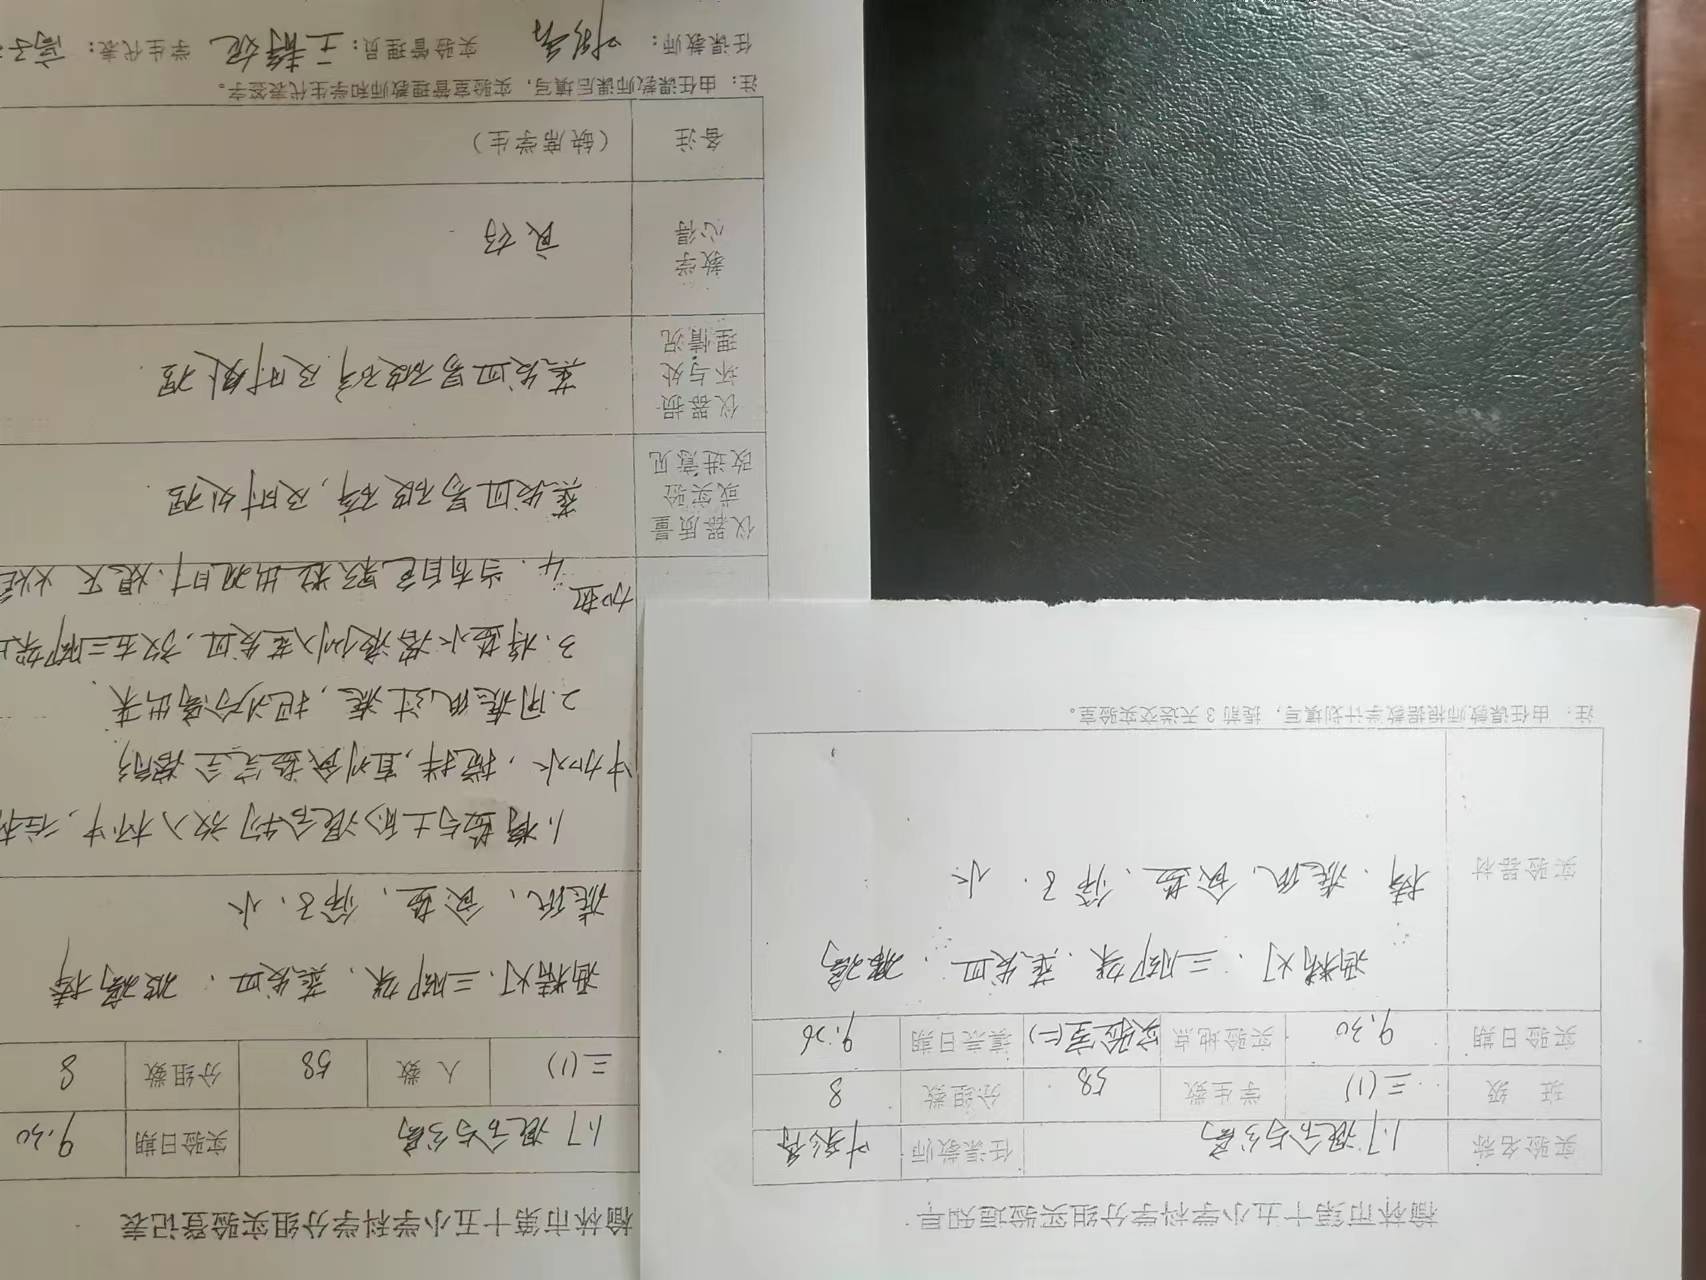 榆林市第十五小学科学分组实验通知单
实验名称 1.7混合与分离 任课教师
班 级 三(1) 学生数 58 分组数 8
实验日期 9.30 实验地点 实验室(二) 填表日期 9.26
实验器材 酒精灯、三脚架、蒸发皿、玻璃
棒、滤纸、食盐、筛子、水
注：由任课教师根据教学计划填写，提前3天送交实验室。
榆林市第十五小学科学分组实验登记表
1.7混合与分离 实验日期 9.30
三(1) 人数 58 分组数 8
酒精灯、三脚架、蒸发皿、玻璃棒
滤纸、食盐、筛子、水
1.将盐与土的混合物放入杯中，往杯
中加水，搅拌，直到食盐完全溶解
2.用滤纸过滤，把沙分离出来
3.将盐水溶液倒入蒸发皿，放在三脚架上
加热
4.当有白色颗粒出现时，熄灭
仪器质量或实验改进意见 蒸发皿易破碎，及时处理
仪器损坏与处理情况 蒸发皿易破碎及时处理
教学心得 良好
备注 (缺席学生)
注：由任课教师课后填写，实验室管理教师和学生代表签字。
任课教师： 实验管理员： 学生代表：